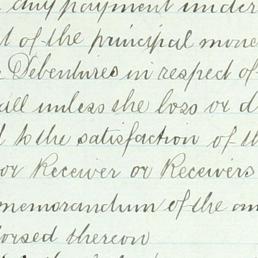 any payment under
t of the principal mone
Debentures in respect of
all unless the loss or d
d to the satisfaction of th
or Receiver or Receivers
memorandum of the am
orsed thereon